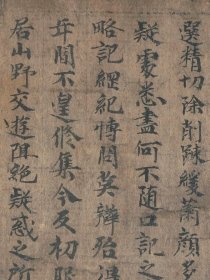 選精切除削踈緩蕭顏多
疑處悉盡何不隨口記之
略記綱紀博問英辯殆得
年間不遑修集今反初服
居山野交遊阻絕疑惑之所